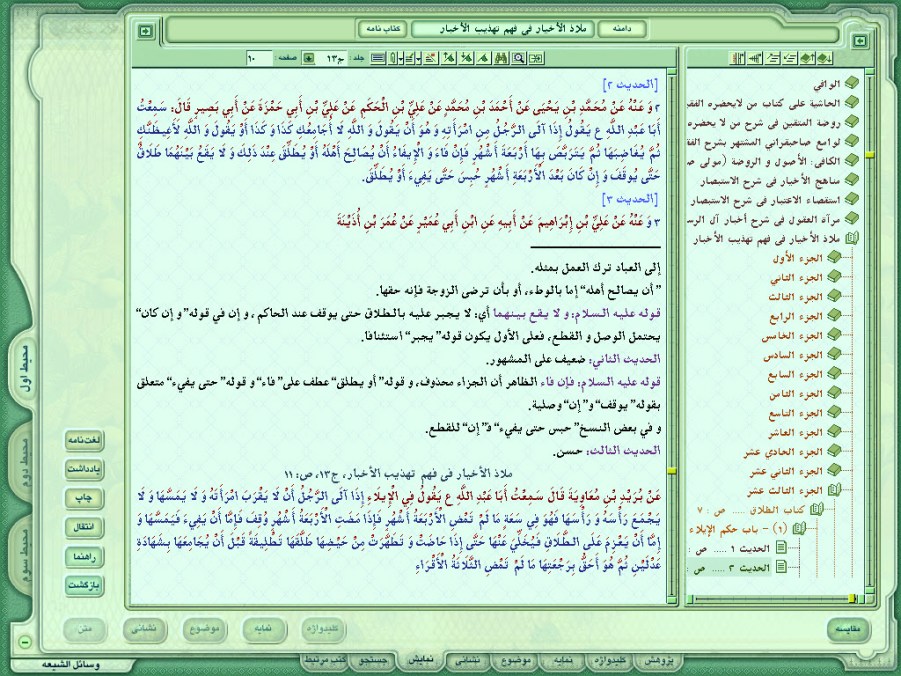 دامنه
ملاذ الأخيار في فهم تهذيب الأخبار
كتاب نامه
جلد ج١٣ صفحه ١٠
[الحديث ٢]
٢ وَ عَنْهُ عَنْ مُحَمَّدِ بْنِ يَحْيَى عَنْ أَحْمَدَ بْنِ مُحَمَّدٍ عَنْ عَلِيِّ بْنِ الْحَكَمِ عَنْ عَلِيِّ بْنِ أَبِي حَمْزَةَ عَنْ أَبِي بَصِيرٍ قَالَ: سَمِعْتُ
أَبَا عَبْدِ اللَّهِ ع يَقُولُ إِذَا آلَى الرَّجُلُ مِنِ امْرَأَتِهِ وَ هُوَ أَنْ يَقُولَ وَ اللَّهِ لَا أُجَامِعُكِ كَذَا وَ كَذَا أَوْ يَقُولَ وَ اللَّهِ لَأَغِيظَنَّكِ
ثُمَّ يُغَاضِبَهَا ثُمَّ يَتَرَبَّصُ بِهَا أَرْبَعَةَ أَشْهُرٍ فَإِنْ فَاءَ وَ الْإِيفَاءُ أَنْ يُصَالِحَ أَهْلَهُ أَوْ يُطَلِّقَ عِنْدَ ذَلِكَ وَ لَا يَقَعُ بَيْنَهُمَا طَلَاقٌ
حَتَّى يُوقَفَ وَ إِنْ كَانَ بَعْدَ الْأَرْبَعَةِ أَشْهُرٍ حُبِسَ حَتَّى يَفِيءَ أَوْ يُطَلِّقَ.
[الحديث ٣]
٣ وَ عَنْهُ عَنْ عَلِيِّ بْنِ إِبْرَاهِيمَ عَنْ أَبِيهِ عَنِ ابْنِ أَبِي عُمَيْرٍ عَنْ عُمَرَ بْنِ أُذَيْنَةَ
إلى العباد ترك العمل بمثله.
"أن يصالح أهله" إما بالوطء، أو بأن ترضى الزوجة فإنه حقها.
قوله عليه السلام: و لا يقع بينهما أي: لا يجبر عليه بالطلاق حتى يوقف عند الحاكم، و إن في قوله" و إن كان"
يحتمل الوصل و القطع، فعلى الأول يكون قوله" يجبر" استئنافا.
الحديث الثاني: ضعيف على المشهور.
قوله عليه السلام: فإن فاء الظاهر أن الجزاء محذوف، و قوله" أو يطلق" عطف على" فاء" و قوله" حتى يفيء" متعلق
بقوله" يوقف" و" إن" وصلية.
و في بعض النسخ" حبس حتى يفيء" ف" إن" للقطع.
الحديث الثالث: حسن.
ملاذ الأخيار في فهم تهذيب الأخبار، ج١٣، ص: ١١
عَنْ بُرَيْدِ بْنِ مُعَاوِيَةَ قَالَ سَمِعْتُ أَبَا عَبْدِ اللَّهِ ع يَقُولُ فِي الْإِيلَاءِ إِذَا آلَى الرَّجُلُ أَنْ لَا يَقْرَبَ امْرَأَتَهُ وَ لَا يَمَسَّهَا وَ لَا
يَجْمَعَ رَأْسَهُ وَ رَأْسَهَا فَهُوَ فِي سَعَةٍ مَا لَمْ تَمْضِ الْأَرْبَعَةُ أَشْهُرٍ فَإِذَا مَضَتِ الْأَرْبَعَةُ أَشْهُرٍ وُقِفَ فَإِمَّا أَنْ يَفِيءَ فَيَمَسَّهَا وَ
إِمَّا أَنْ يَعْزِمَ عَلَى الطَّلَاقِ فَيُخَلِّيَ عَنْهَا حَتَّى إِذَا حَاضَتْ وَ تَطَهَّرَتْ مِنْ حَيْضِهَا طَلَّقَهَا تَطْلِيقَةً قَبْلَ أَنْ يُجَامِعَهَا بِشَهَادَةِ
عَدْلَيْنِ ثُمَّ هُوَ أَحَقُّ بِرَجْعَتِهَا مَا لَمْ تَمْضِ الثَّلَاثَةُ الْأَقْرَاءِ
الوافي
الحاشية على كتاب من لايحضره الفقي
روضة المتقين في شرح من لا يحضره
لوامع صاحبقراني المشتهر بشرح الفقي
الكافي: الأصول و الروضة (مولى ص
مناهج الأخيار في شرح الاستبصار
استقصاء الاعتبار في شرح الاستبصار
مرآة العقول في شرح أخبار آل الرس
ملاذ الأخيار في فهم تهذيب الأخبار
الجزء الأول
الجزء الثاني
الجزء الثالث
الجزء الرابع
الجزء الخامس
الجزء السادس
الجزء السابع
الجزء الثامن
الجزء التاسع
الجزء العاشر
الجزء الحادي عشر
الجزء الثاني عشر
الجزء الثالث عشر
كتاب الطلاق .... ص : ٧
(١) - باب حكم الإيلاء
الحديث ١ .... ص :
الحديث ٢ .... ص :
محيط اول
محيط دوم
محيط سوم
لغت‌نامه
يادداشت
چاپ
انتقال
راهنما
بازگشت
مقايسه
كليدواژه
نمايه
موضوع
نشانى
متن
پژوهش
كليدواژه
نمايه
موضوع
نشانى
نمايش
جستجو
كتب مرتبط
وسائل الشيعه